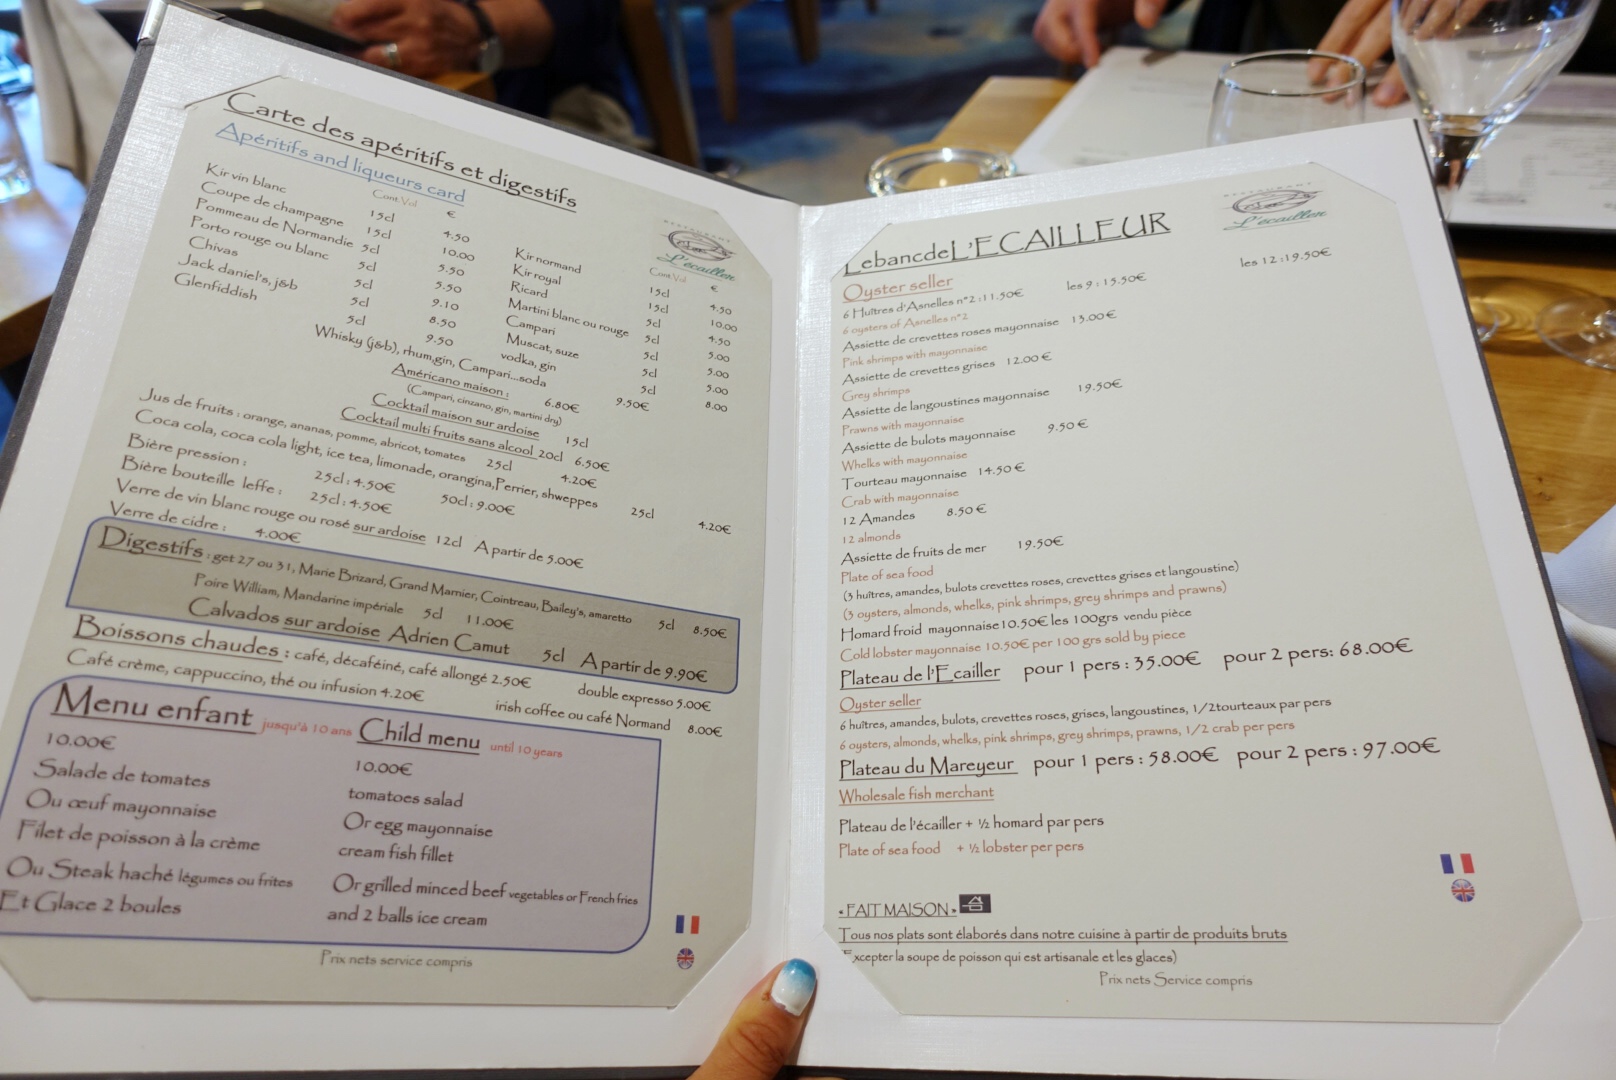 Carte des apéritifs et digestifs
Apéritifs and liqueurs card
Cont.Vol €
Kir vin blanc 15cl 4.50
Coupe de champagne 15cl 10.00
Pommeau de Normandie 5cl 5.50
Porto rouge ou blanc 5cl 5.50
Chivas 5cl 9.10
Jack daniel's, j&b 5cl 8.50
Glenfiddish 5cl 9.50
L'écailler
Cont.Vol €
Kir normand 15cl 4.50
Kir royal 15cl 10.00
Ricard 5cl 4.50
Martini blanc ou rouge 5cl 5.00
Campari 5cl 5.00
Muscat, suze 5cl 5.00
vodka, gin 5cl 8.00
Whisky (j&b), rhum,gin, Campari...soda 9.50€
Américano maison : 6.80€
(Campari, cinzano, gin, martini dry)
Cocktail maison sur ardoise 15cl
Cocktail multi fruits sans alcool 20cl 6.50€
Jus de fruits : orange, ananas, pomme, abricot, tomates 25cl 4.20€
Coca cola, coca cola light, ice tea, limonade, orangina,Perrier, shweppes 25cl 4.20€
Bière pression : 25cl : 4.50€ 50cl : 9.00€
Bière bouteille leffe : 25cl : 4.50€
Verre de vin blanc rouge ou rosé sur ardoise 12cl A partir de 5.00€
Verre de cidre : 4.00€
Digestifs : get 27 ou 31, Marie Brizard, Grand Marnier, Cointreau, Bailey's, amaretto 5cl 8.50€
Poire William, Mandarine impériale 5cl 11.00€
Calvados sur ardoise Adrien Camut 5cl A partir de 9.90€
Boissons chaudes : café, décaféiné, café allongé 2.50€ double expresso 5.00€
Café crème, cappuccino, thé ou infusion 4.20€ irish coffee ou café Normand 8.00€
Menu enfant jusqu'à 10 ans Child menu until 10 years
10.00€ 10.00€
Salade de tomates tomatoes salad
Ou œuf mayonnaise Or egg mayonnaise
Filet de poisson à la crème cream fish fillet
Ou Steak haché légumes ou frites Or grilled minced beef vegetables or French fries
Et Glace 2 boules and 2 balls ice cream
Prix nets service compris
LebancdeL'ECAILLEUR
L'écailler
Oyster seller
6 Huîtres d'Asnelles n°2 :11.50€ les 9 : 15.50€ les 12 :19.50€
6 oysters of Asnelles n°2
Assiette de crevettes roses mayonnaise 13.00€
Pink shrimps with mayonnaise
Assiette de crevettes grises 12.00€
Grey shrimps
Assiette de langoustines mayonnaise 19.50€
Prawns with mayonnaise
Assiette de bulots mayonnaise 9.50€
Whelks with mayonnaise
Tourteau mayonnaise 14.50€
Crab with mayonnaise
12 Amandes 8.50€
12 almonds
Assiette de fruits de mer 19.50€
Plate of sea food
(3 huîtres, amandes, bulots crevettes roses, crevettes grises et langoustine)
(3 oysters, almonds, whelks, pink shrimps, grey shrimps and prawns)
Homard froid mayonnaise10.50€ les 100grs vendu pièce
Cold lobster mayonnaise 10.50€ per 100 grs sold by piece
Plateau de l'Ecailler pour 1 pers : 35.00€ pour 2 pers: 68.00€
Oyster seller
6 huîtres, amandes, bulots, crevettes roses, grises, langoustines, 1/2tourteaux par pers
6 oysters, almonds, whelks, pink shrimps, grey shrimps, prawns, 1/2 crab per pers
Plateau du Mareyeur pour 1 pers : 58.00€ pour 2 pers : 97.00€
Wholesale fish merchant
Plateau de l'écailler + ½ homard par pers
Plate of sea food + ½ lobster per pers
« FAIT MAISON »
Tous nos plats sont élaborés dans notre cuisine à partir de produits bruts
Excepter la soupe de poisson qui est artisanale et les glaces)
Prix nets Service compris